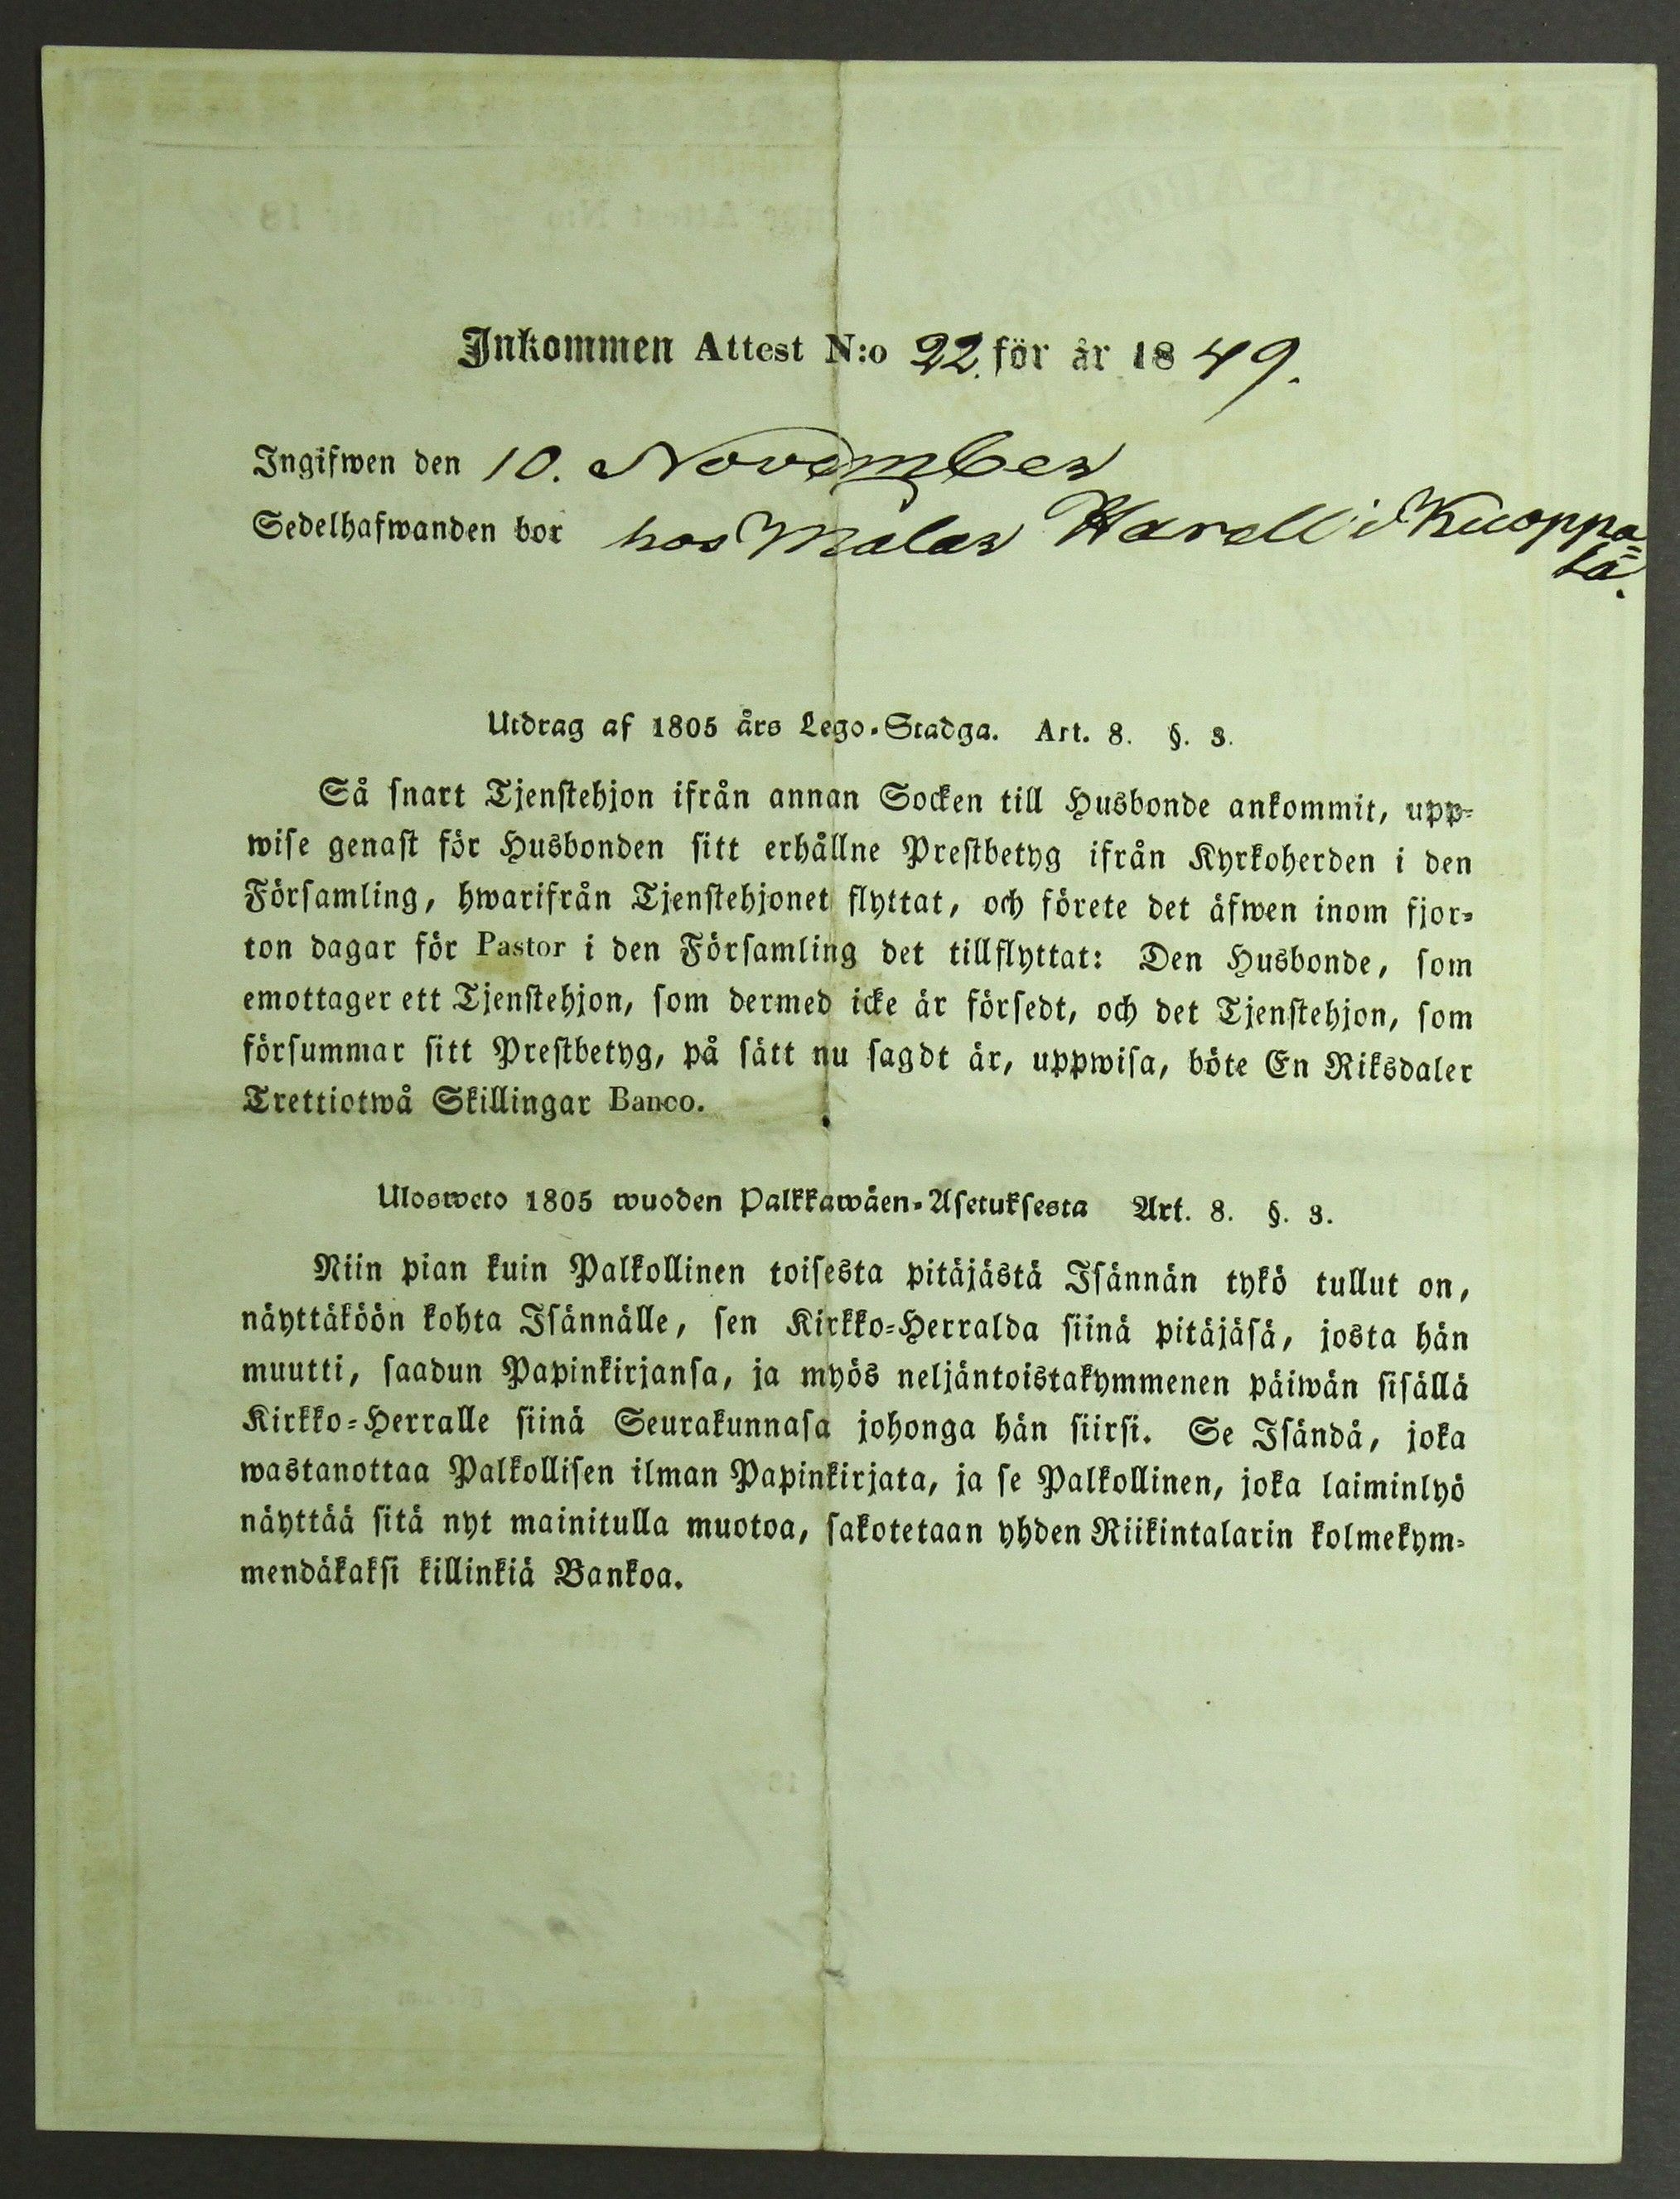 Inkommen Attest N:o 22. för år 1849.
Ingifwen den 10. November
Sedelhafwanden bor hos Målar Harell i Kuoppa=
la.
Utdrag af 1805 års Lego-Stadga. Art. 8. §. 3.
Så snart Tjenstehjon ifrån annan Socken till Husbonde ankommit, upp-
wise genast för Husbonden sitt erhållne Prestbetyg ifrån Kyrkoherden i den
Församling, hwarifrån Tjenstehjonet flyttat, och förete det äfwen inom fjor-
ton dagar för Pastor i den Församling det tillflyttat: Den Husbonde, som
emottager ett Tjenstehjon, som dermed icke är försedt, och det Tjenstehjon, som
försummar sitt Prestbetyg, på sätt nu sagdt är, uppwisa, böte En Riksdaler
Trettiotwå Skillingar Banco.
Ulosweto 1805 wuoden Palkkawäen-Asetuksesta Art. 8. §. 3.
Niin pian kuin Palkollinen toisesta pitäjästä Isännän tykö tullut on,
näyttäköön kohta Isännälle, sen Kirkko-Herralda siinä pitäjäsä, josta hän
muutti, saadun Papinkirjansa, ja myös neljäntoistakymmenen päiwän sisällä
Kirkko-Herralle siinä Seurakunnasa johonga hän siirsi. Se Isändå, joka
wastanottaa Palkollisen ilman Papinkirjata, ja se Palkollinen, joka laiminlyö
näyttää sitä nyt mainitulla muotoa, sakotetaan yhden Riikintalarin kolmekym-
mendäkaksi killinkiä Bankoa.